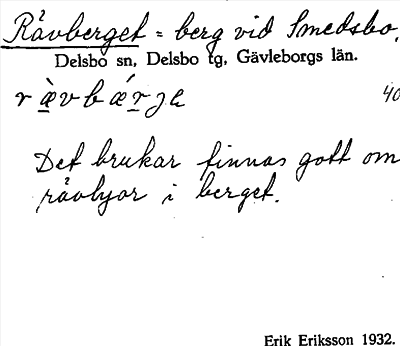 Rävberget = berg vid Smedsbo,
Delsbo sn, Delsbo tg, Gävleborgs län.
r æ̀ v b ǽ r j e 40
Det brukar finnas gott om
rävlyor i berget.
Erik Eriksson 1932.